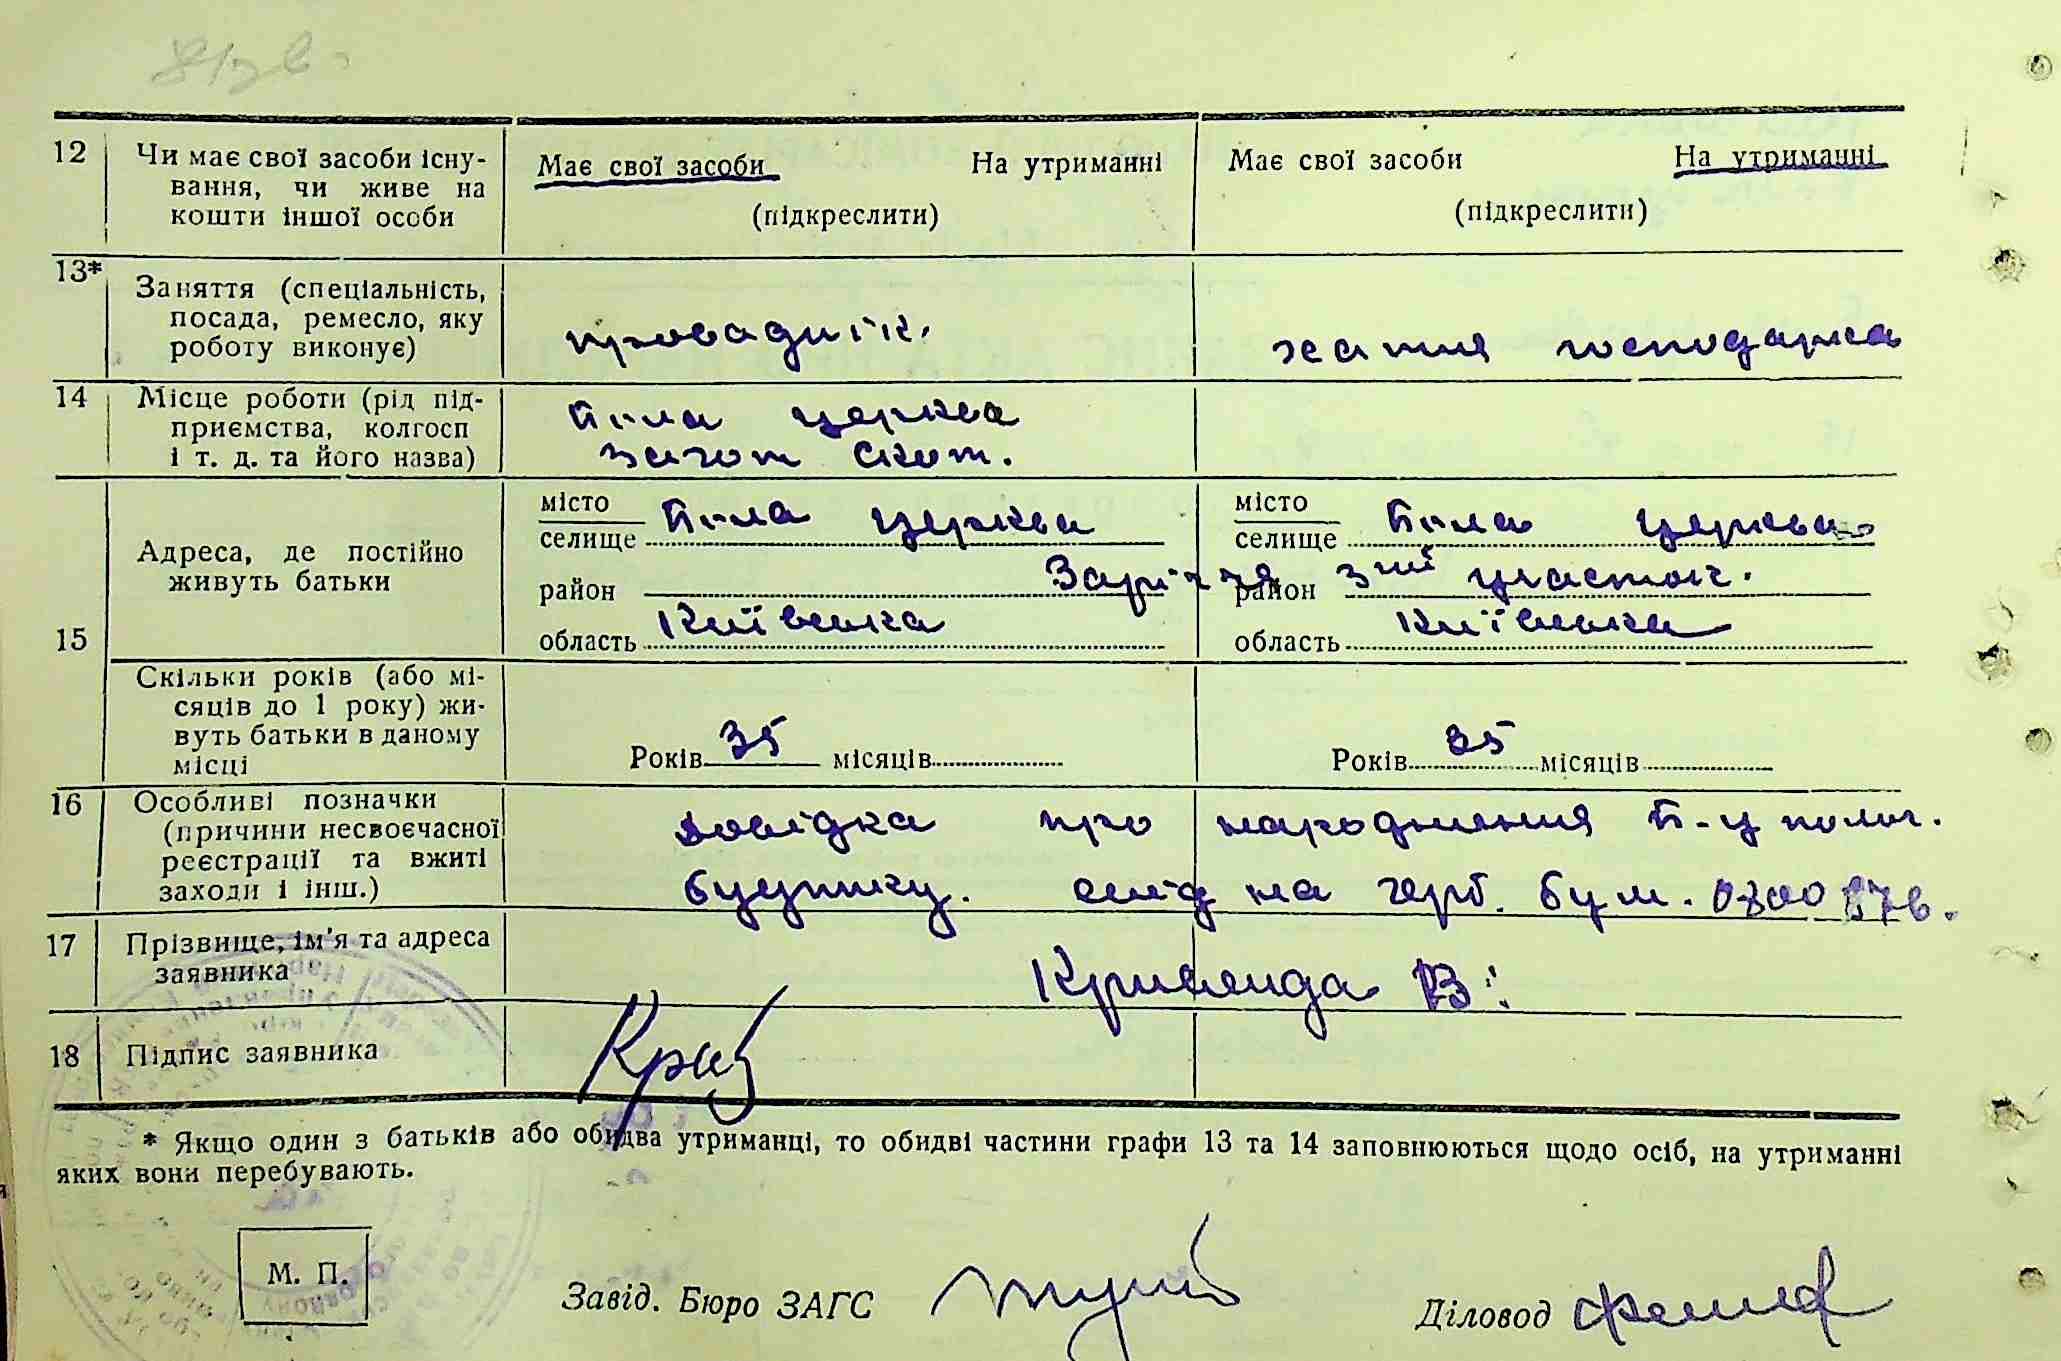 12 Чи має свої засоби існу-
вання, чи живе на
кошти іншої особи
Має свої засоби На утриманні
(підкреслити)
Має свої засоби На утриманні
(підкреслити)
13* Заняття (спеціальність,
посада, ремесло, яку
роботу виконує)
провадник.
хатня господарка
14 Місце роботи (рід під-
приємства, колгосп
і т. д. та його назва)
Біла церква
загот скот.
15 Адреса, де постійно
живуть батьки
місто
селище Біла церква
район Заріччя
область Київська
місто
селище Біла церква
район 3тий участок.
область Київська
Скільки років (або мі-
сяців до 1 року) жи-
вуть батьки в даному
місці
Років 35 місяців
Років 35 місяців
16 Особливі позначки
(причини несвоєчасної
реєстрації та вжиті
заходи і інш.)
довідка про народження Б-ц полог.
будинку. на герб. бум.
17 Прізвище, ім'я та адреса
заявника
Кривенда В.
18 Підпис заявника
* Якщо один з батьків або обидва утриманці, то обидві частини графи 13 та 14 заповнюються щодо осіб, на утриманні
яких вони перебувають.
М. П.
Завід. Бюро ЗАГС
Діловод